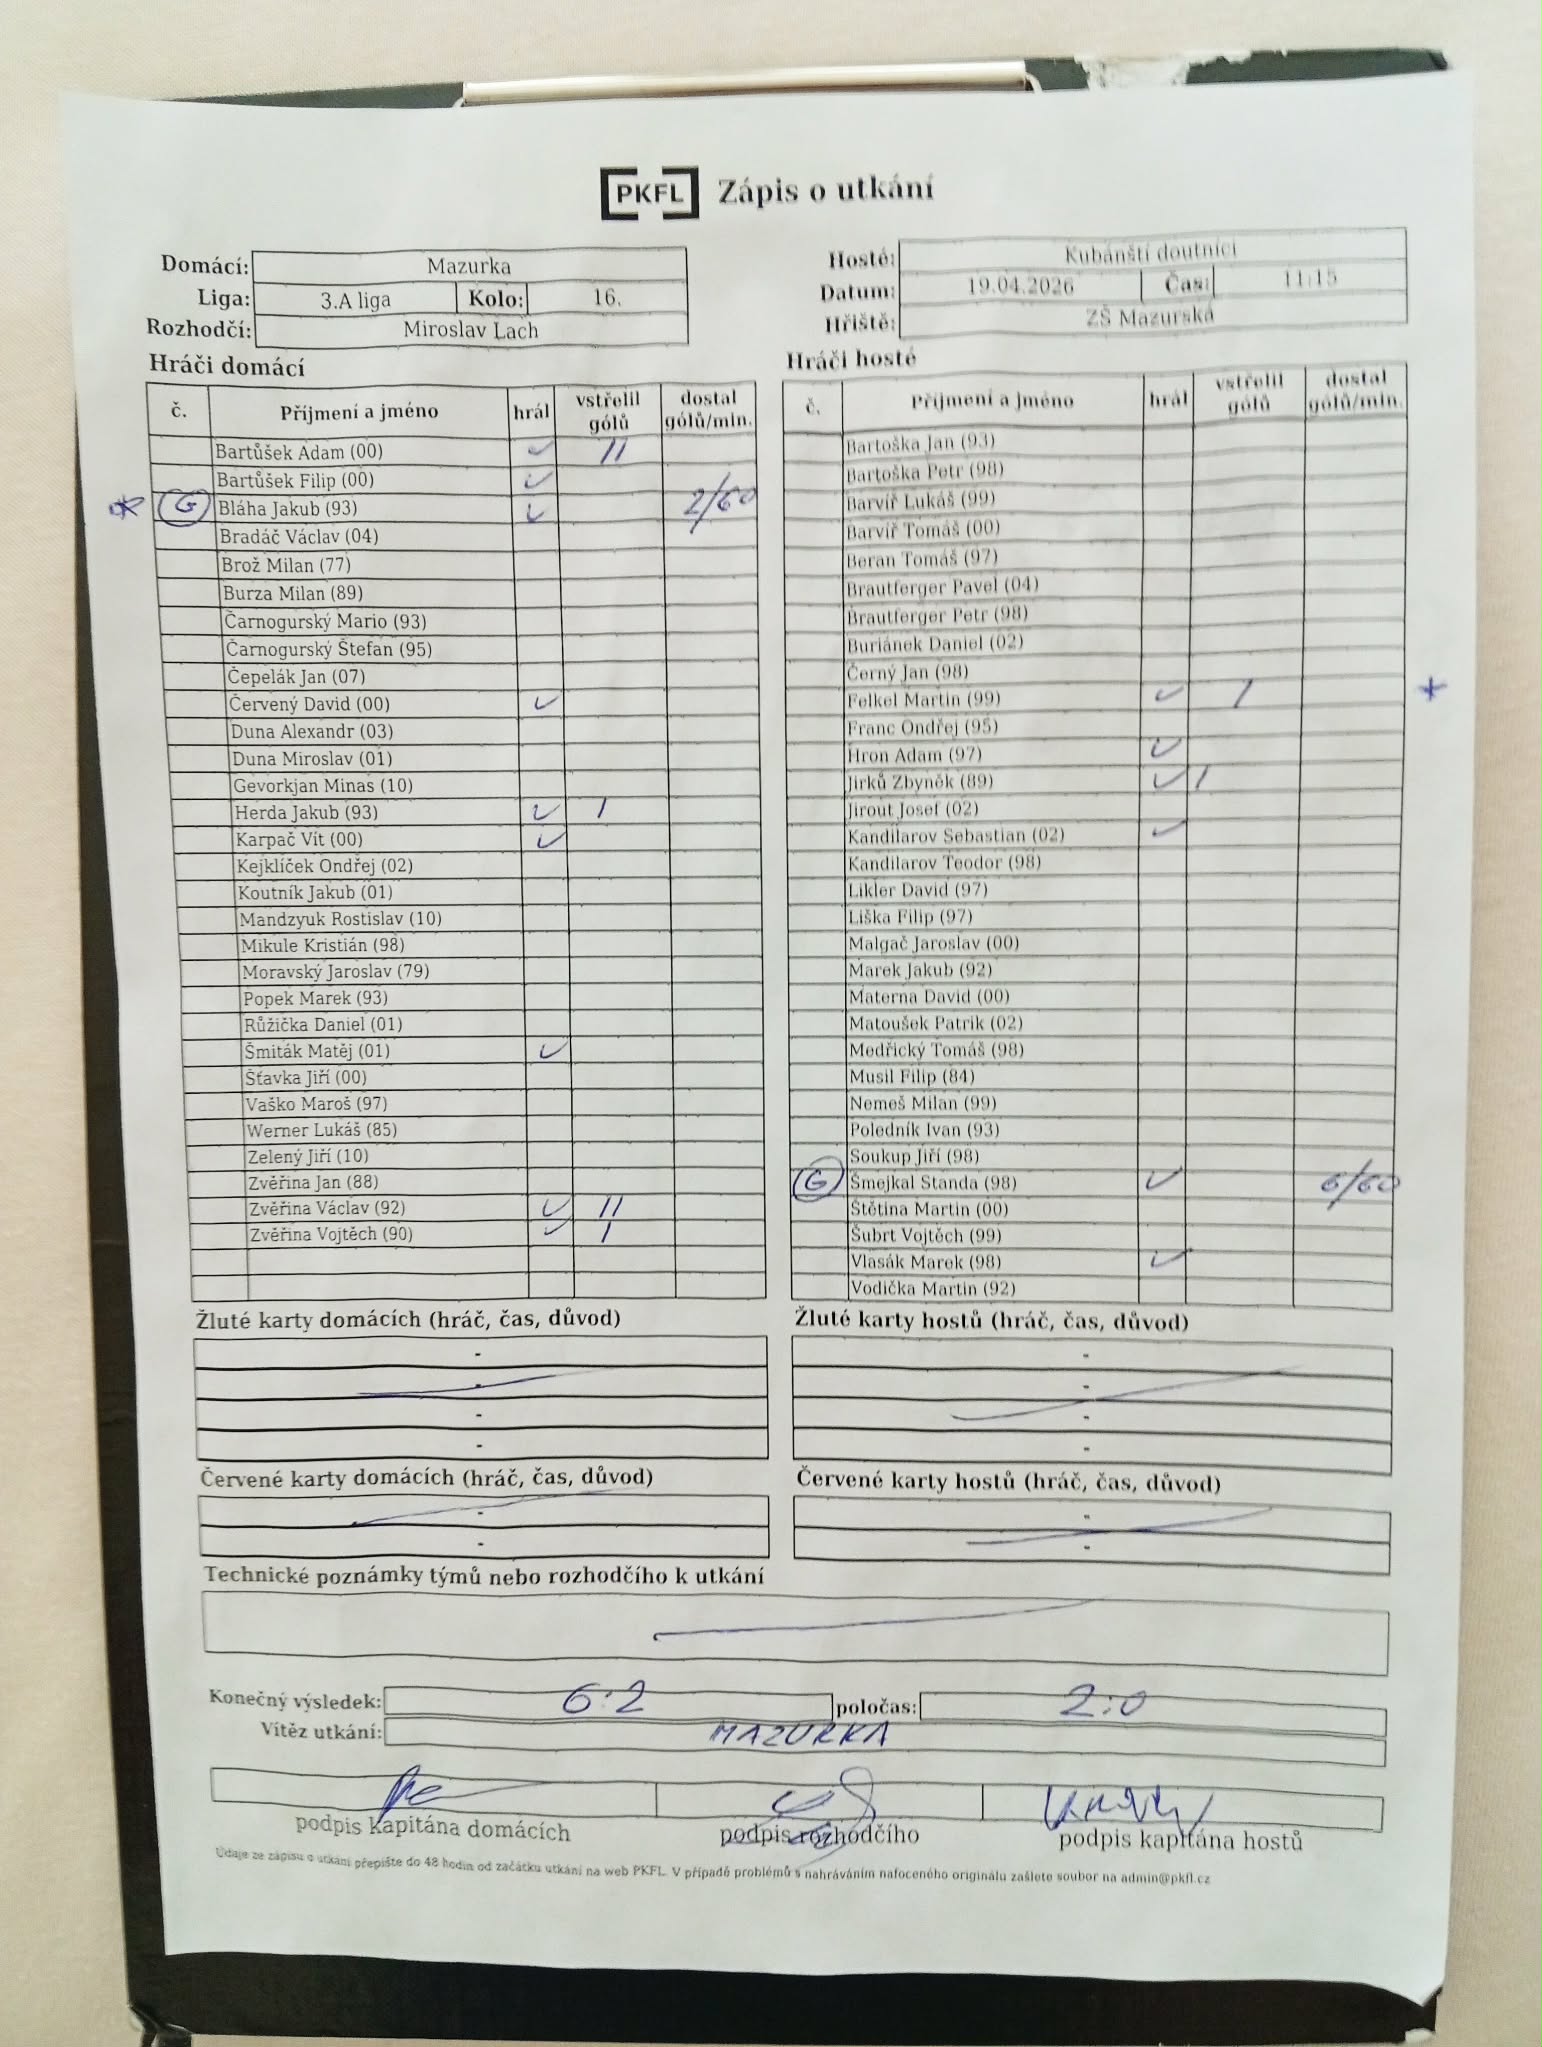 PKFL Zápis o utkání
Domácí: Mazurka
Liga: 3.A liga Kolo: 16.
Rozhodčí: Miroslav Lach
Hosté: Kubánští doutníci
Datum: 19.04.2026 Čas: 11:15
Hřiště: ZŠ Mazurská
Hráči domácí
č. Příjmení a jméno hrál vstřelil gólů dostal gólů/min.
Bartůšek Adam (00) ✓ 11
Bartůšek Filip (00) ✓
* G Bláha Jakub (93) ✓ 2/60
Bradáč Václav (04)
Brož Milan (77)
Burza Milan (89)
Čarnogurský Mario (93)
Čarnogurský Štefan (95)
Čepelák Jan (07)
Červený David (00) ✓
Duna Alexandr (03)
Duna Miroslav (01)
Gevorkjan Minas (10)
Herda Jakub (93) ✓ 1
Karpač Vít (00) ✓
Kejklíček Ondřej (02)
Koutník Jakub (01)
Mandzyuk Rostislav (10)
Mikule Kristián (98)
Moravský Jaroslav (79)
Popek Marek (93)
Růžička Daniel (01)
Šmiták Matěj (01) ✓
Šťavka Jiří (00)
Vaško Maroš (97)
Werner Lukáš (85)
Zelený Jiří (10)
Zvěřina Jan (88)
Zvěřina Václav (92) ✓ 11
Zvěřina Vojtěch (90) ✓ 1
Hráči hosté
č. Příjmení a jméno hrál vstřelil gólů dostal gólů/min.
Bartoška Jan (93)
Bartoška Petr (98)
Barvíř Lukáš (99)
Barvíř Tomáš (00)
Beran Tomáš (97)
Brautferger Pavel (04)
Brautferger Petr (98)
Buriánek Daniel (02)
Černý Jan (98)
Felkel Martin (99) ✓ 1 *
Franc Ondřej (95)
Hron Adam (97) ✓
Jirků Zbyněk (89) ✓ 1
Jirout Josef (02)
Kandilarov Sebastian (02) ✓
Kandilarov Teodor (98)
Likler David (97)
Liška Filip (97)
Malgač Jaroslav (00)
Marek Jakub (92)
Materna David (00)
Matoušek Patrik (02)
Medřický Tomáš (98)
Musil Filip (84)
Nemeš Milan (99)
Poledník Ivan (93)
Soukup Jiří (98)
G Šmejkal Standa (98) ✓ 6/60
Štětina Martin (00)
Šubrt Vojtěch (99)
Vlasák Marek (98) ✓
Vodička Martin (92)
Žluté karty domácích (hráč, čas, důvod)
-
-
-
-
Žluté karty hostů (hráč, čas, důvod)
-
-
-
-
Červené karty domácích (hráč, čas, důvod)
-
-
Červené karty hostů (hráč, čas, důvod)
-
-
Technické poznámky týmů nebo rozhodčího k utkání
Konečný výsledek: 6:2 poločas: 2:0
Vítěz utkání: MAZURKA
podpis kapitána domácích podpis rozhodčího podpis kapitána hostů
Údaje ze zápisu o utkání přepište do 48 hodin od začátku utkání na web PKFL. V případě problémů s nahráváním nafoceného originálu zašlete soubor na admin@pkfl.cz